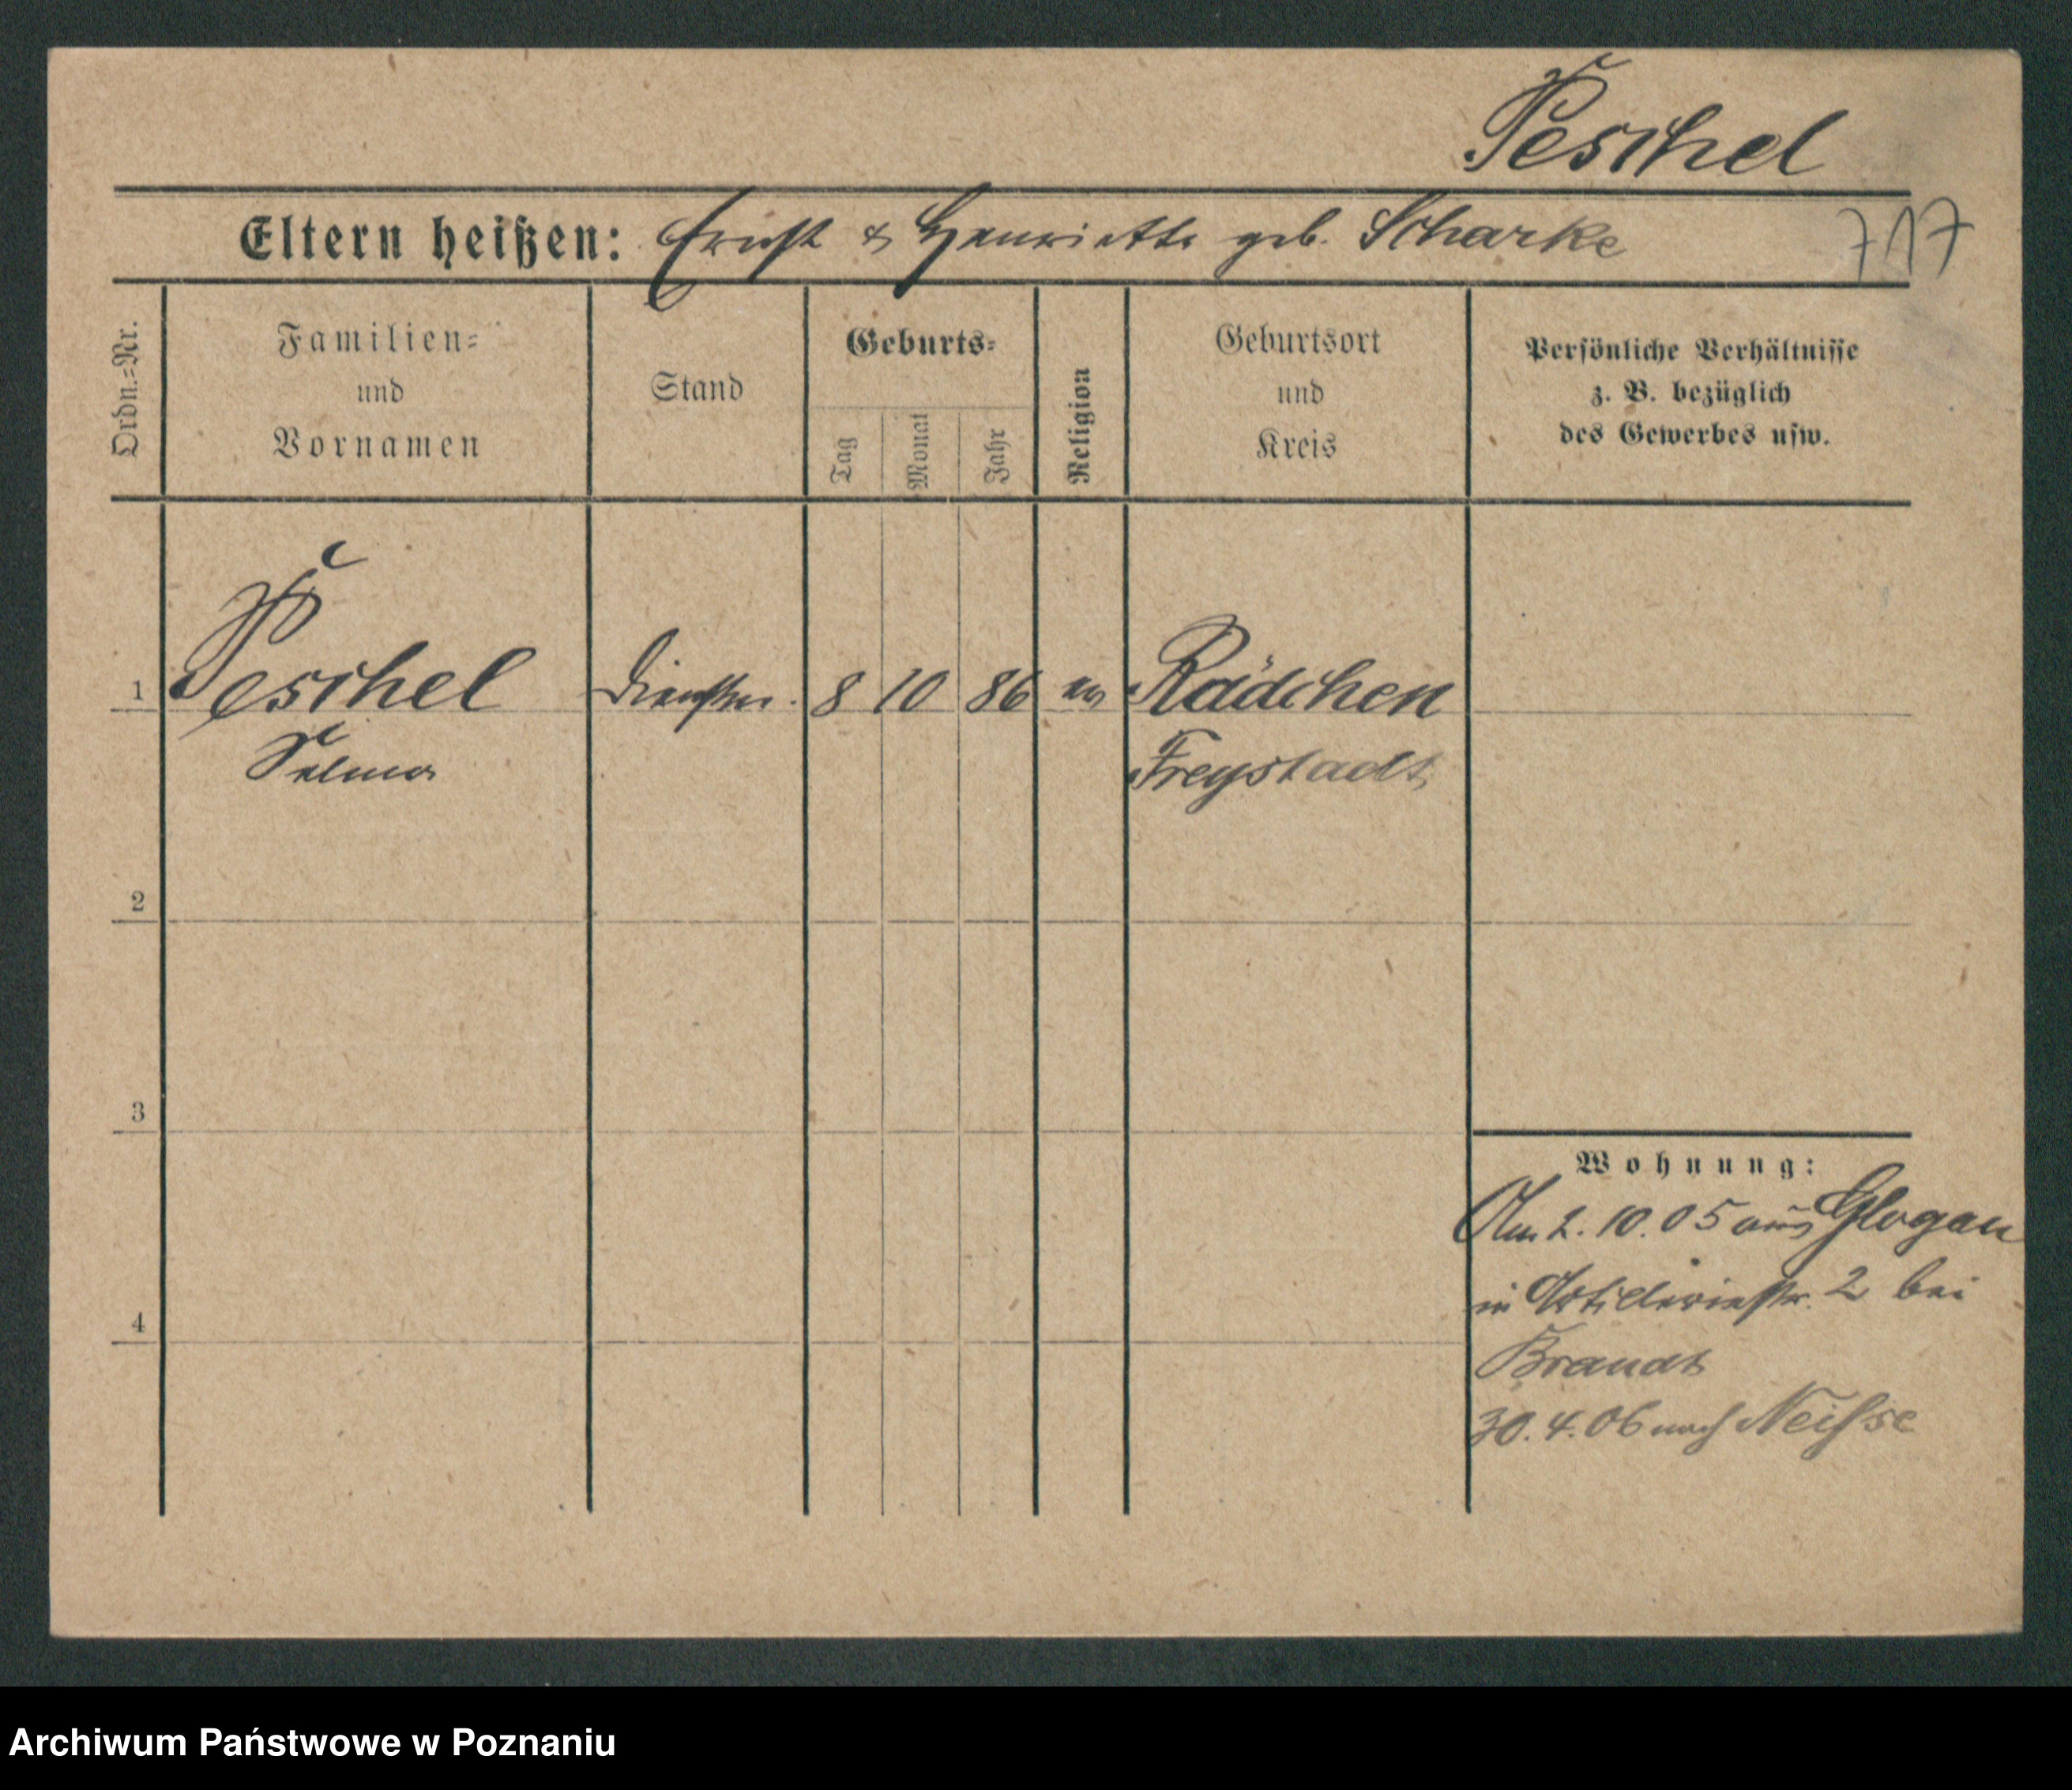 Peschel
Eltern heißen: Ernst & Henriette geb. Scharke
717
Ordn.=Nr.
Familien=
und
Vornamen
Stand
Geburts=
Tag
Monat
Jahr
Religion
Geburtsort
und
Kreis
Persönliche Verhältnisse
z. B. bezüglich
des Gewerbes usw.
1 Peschel Dienstm. 8 10 86 ev Rädchen
Selma Freystadt
2
3
4
Wohnung:
Am 2. 10. 05 aus Glogau
in Artilleriestr. 2 bei
Brandt
30. 4. 06 nach Neisse
Archiwum Państwowe w Poznaniu